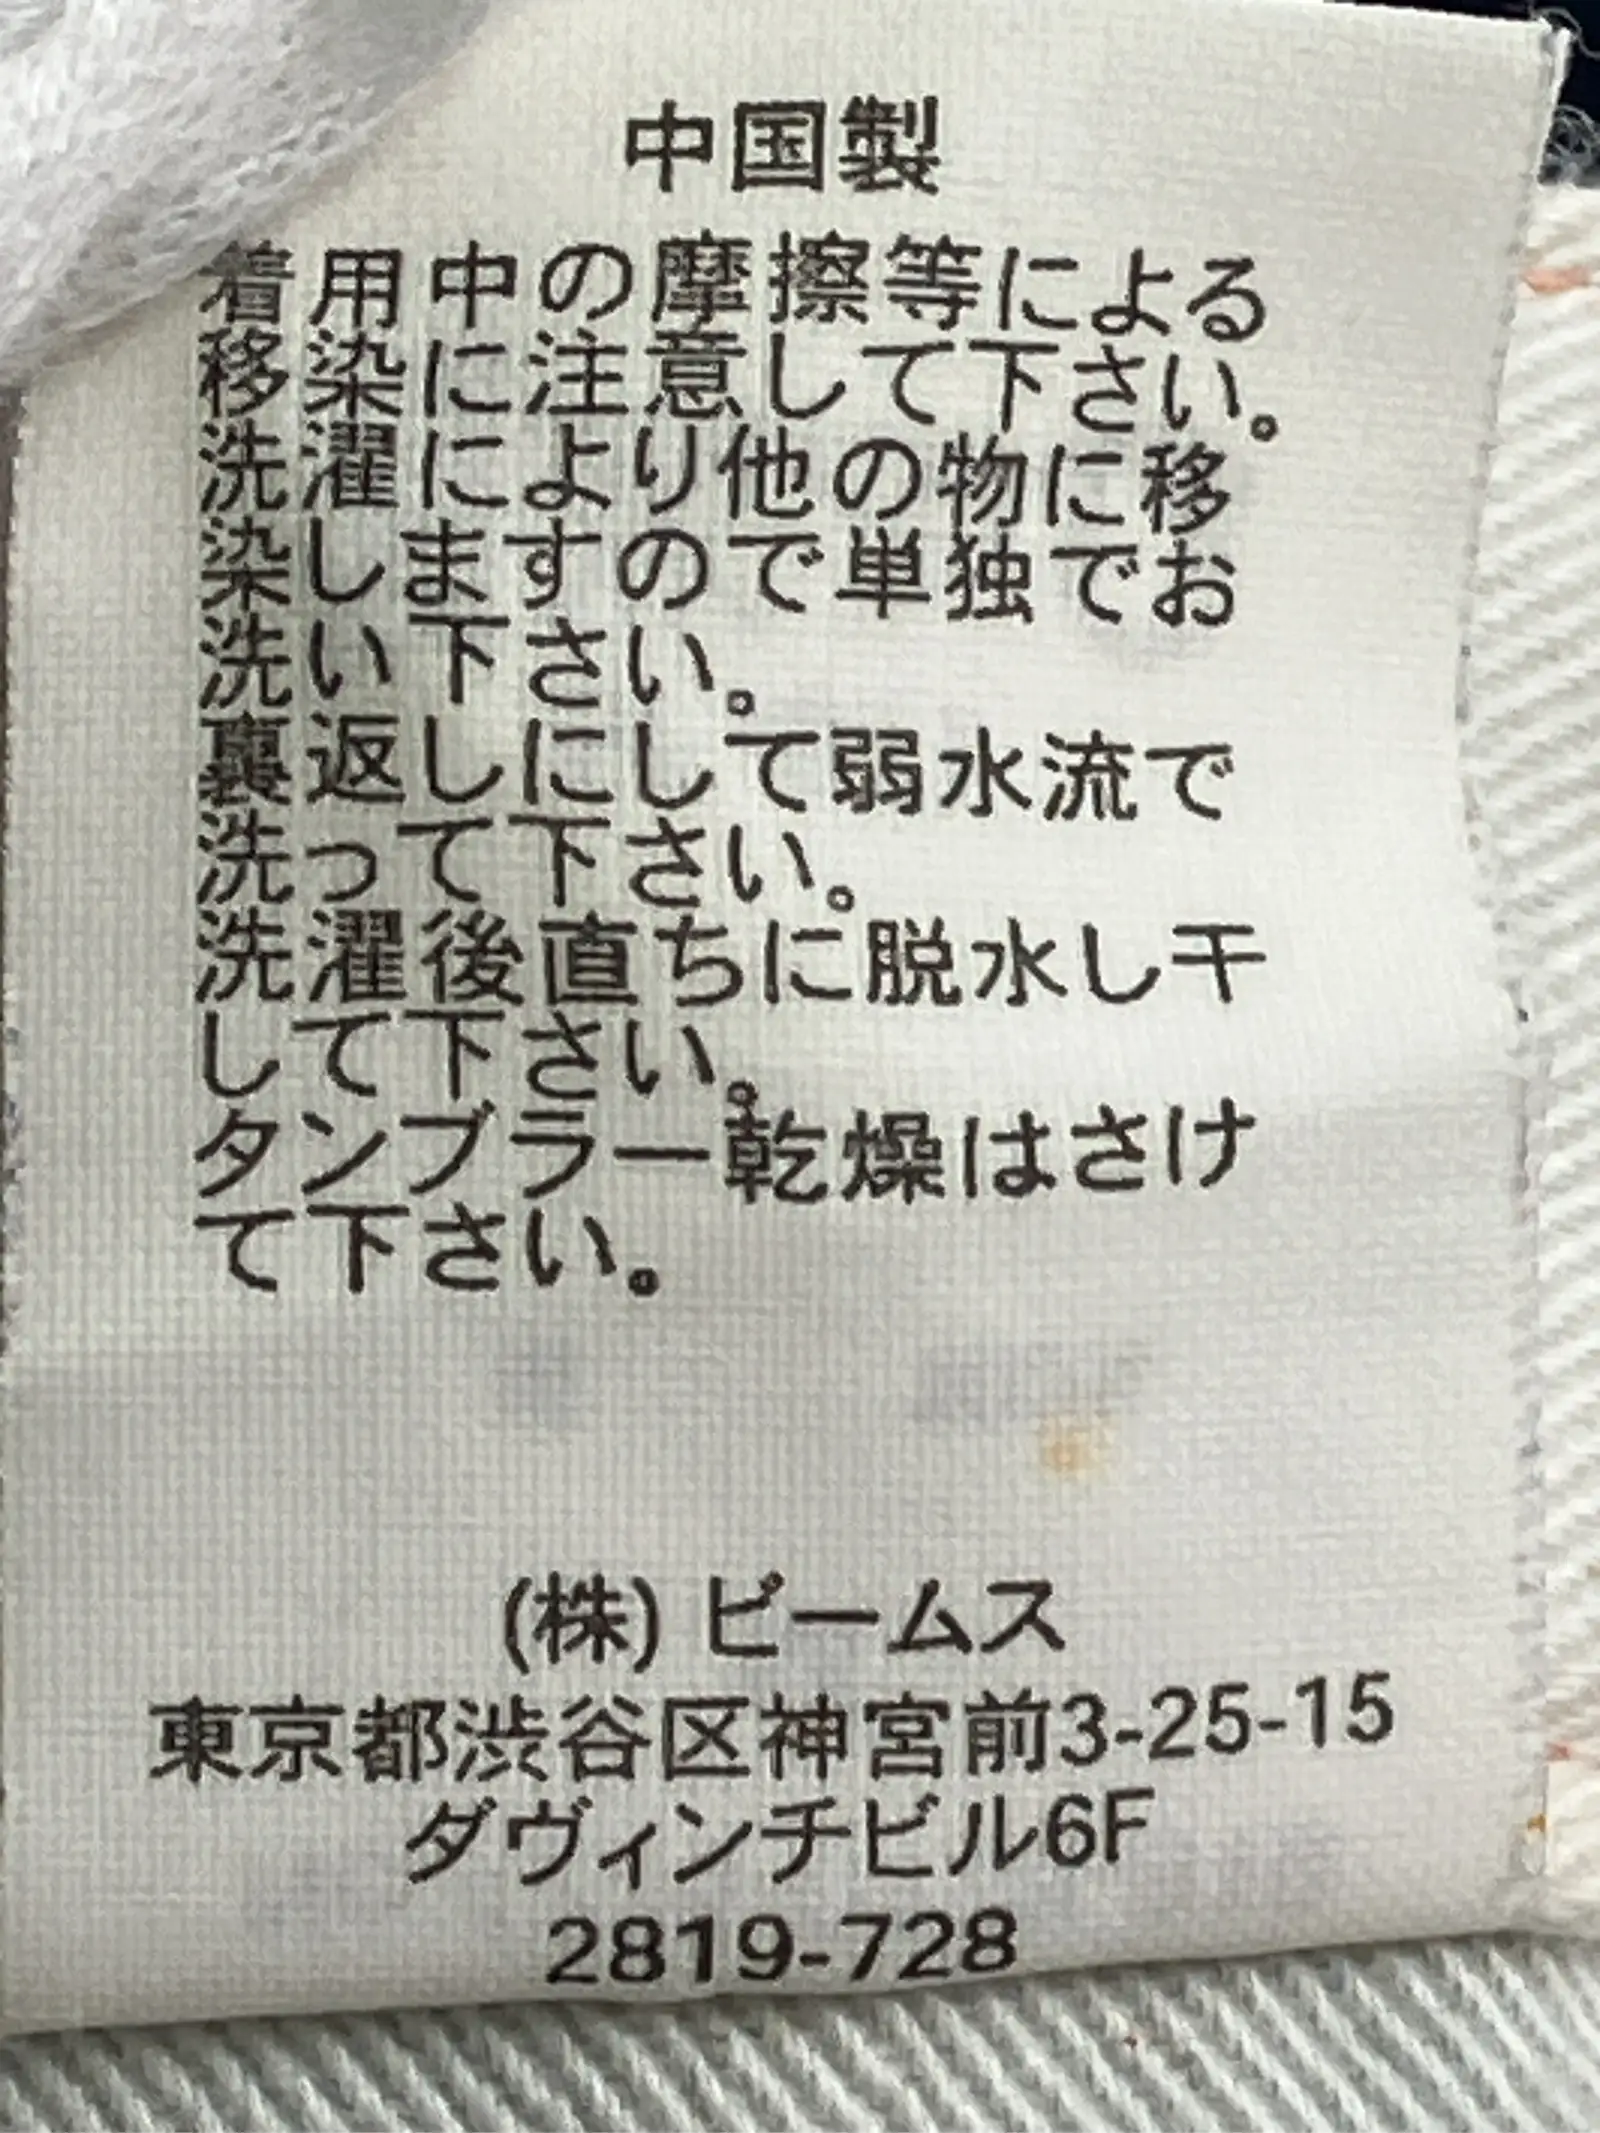 中国製
着用中の摩擦等による
移染に注意して下さい。
洗濯により他の物に移
染しますので単独でお
洗い下さい。
裏返しにして弱水流で
洗って下さい。
洗濯後直ちに脱水し干
して下さい。
タンブラー乾燥はさけ
て下さい。
(株) ビームス
東京都渋谷区神宮前3-25-15
ダヴィンチビル6F
2819-728